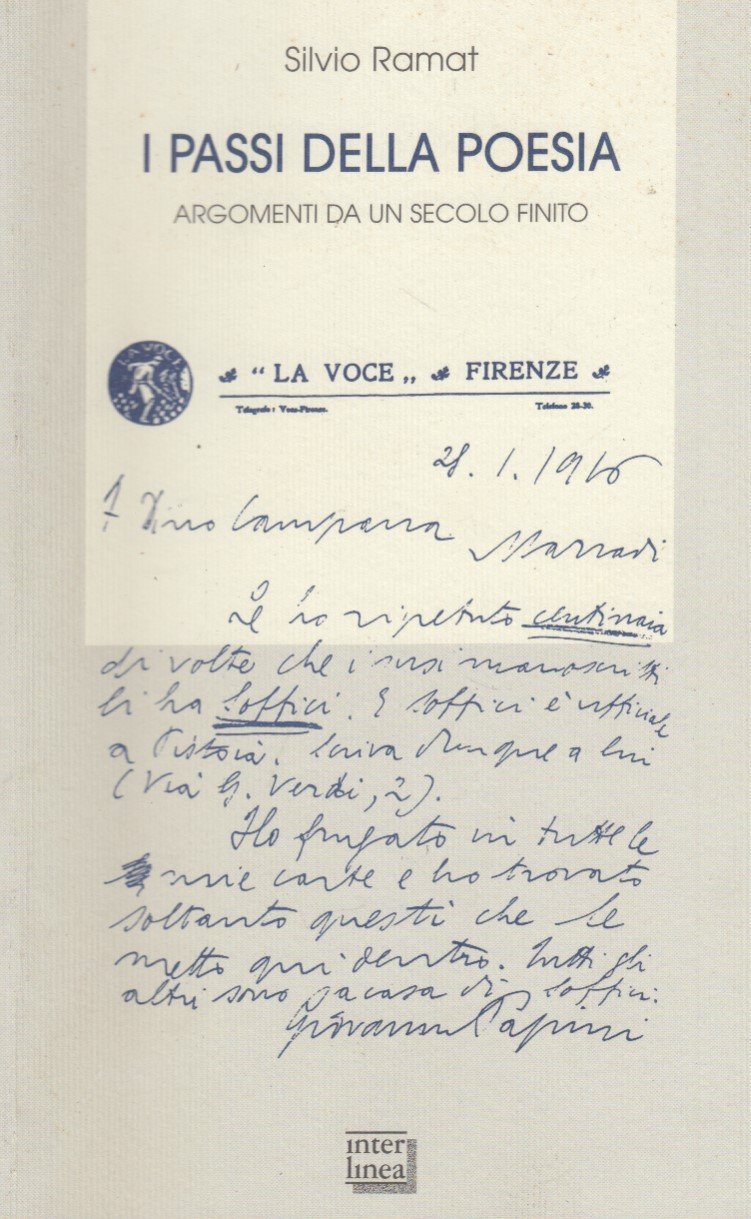 Silvio Ramat
I PASSI DELLA POESIA
ARGOMENTI DA UN SECOLO FINITO
LA VOCE
"LA VOCE„ FIRENZE
Telegrafo: Voce-Firenze. Telefono 28-30.
28. 1. 1916
A Dino Campana
Marradi
Le ho ripetuto centinaia
di volte che i suoi manoscritti
li ha Soffici. E Soffici è ufficiale
a Pistoia. Scriva dunque a lui
(Via G. Verdi, 2).
Ho frugato in tutte le
mie carte e ho trovato
soltanto questi che le
metto qui dentro. Tutti gli
altri sono a casa di Soffici.
Giovanni Papini
inter
linea